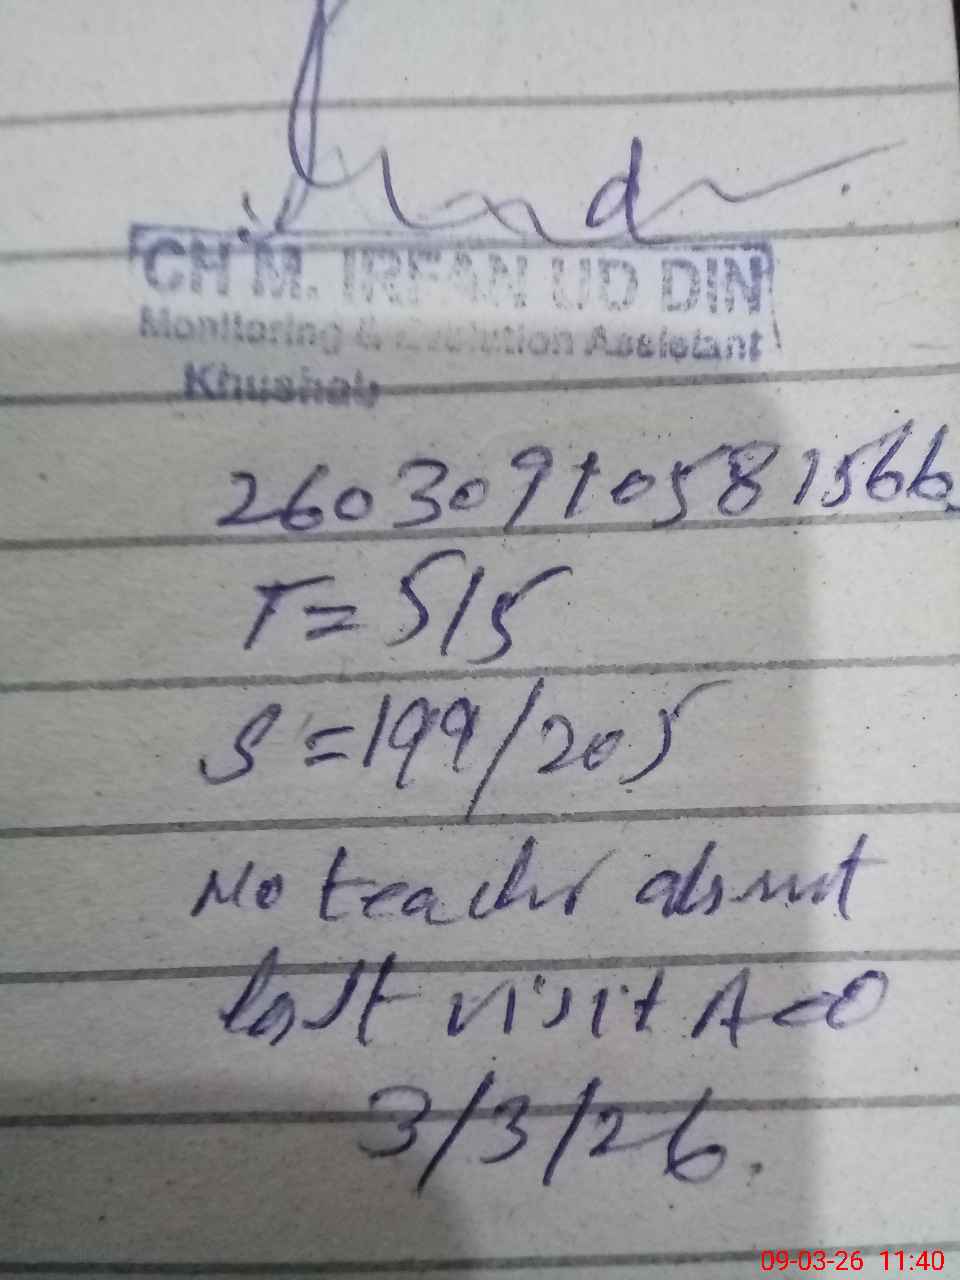 CH M. IRFAN UD DIN
Monitoring & Evalution Assistant
Khushab
26030910581566
T = 5/5
S = 199/205
No teacher absent
last visit AEO
3/3/26.
09-03-26 11:40